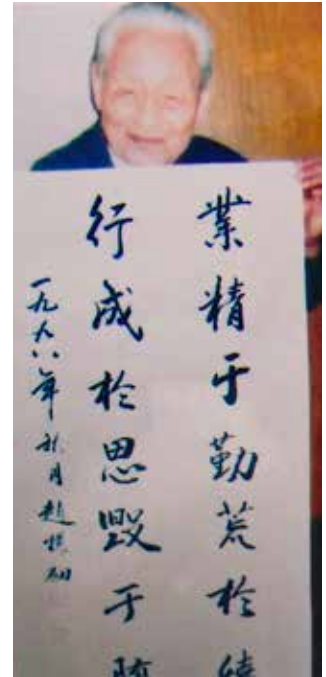 業精于勤荒於
行成於思毀于
一九九八年秋月趙樸初